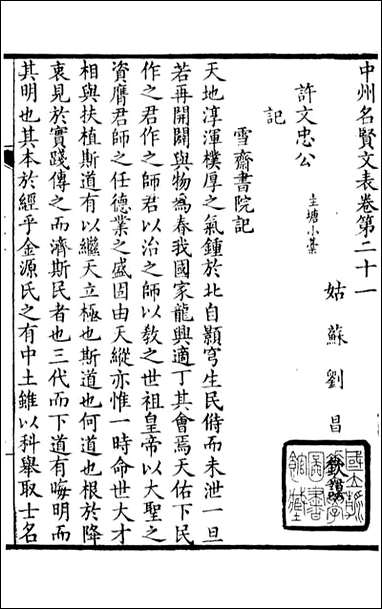 中州名賢文表卷第二十一
姑蘇劉昌
許文忠公 圭塘小藁
記
雪齋書院記
天地淳渾樸厚之氣鍾於北自顥穹生民偫而未泄一旦
若再開闢與物為春我國家龍興適丁其會焉天佑下民
作之君作之師君以治之師以教之世祖皇帝以大聖之
資膺君師之任德業之盛固由天縱亦惟一時命世大才
相與扶植斯道有以繼天立極也斯道也何道也根於降
衷見於實踐傳之而濟斯民者也三代而下道有晦明而
其明也其本於經乎金源氏之有中土雖以科舉取士名